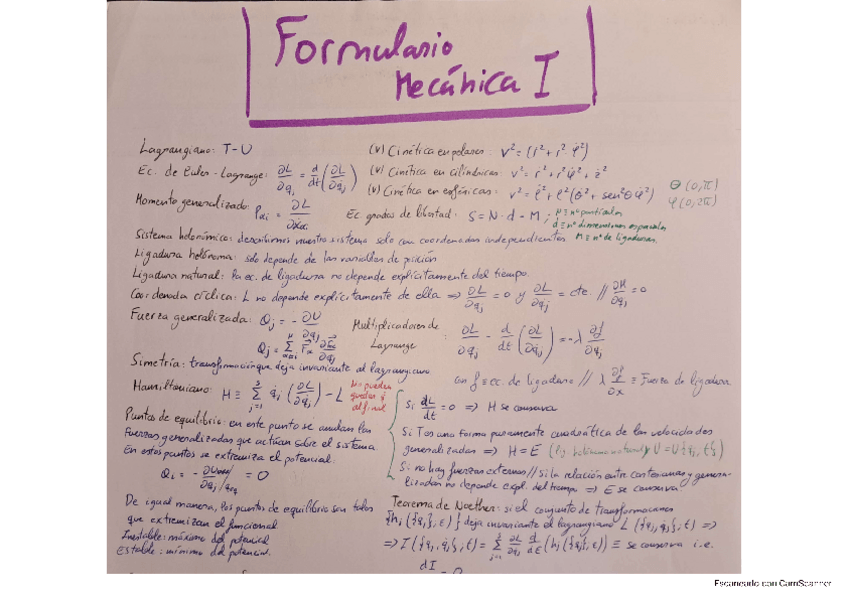 Formulario
Mecánica I
Lagrangiano: T-U
(v) Cinética en polares: v² = (ṙ² + r² φ̇²)
Ec. de Euler-Lagrange: ∂L/∂qⱼ = d/dt (∂L/∂q̇ⱼ)
(v) Cinética en cilíndricas: v² = ṙ² + r² φ̇² + ż²
(v) Cinética en esféricas: v² = ṙ² + r² (θ̇² + sen²θ φ̇²)
θ (0,π)
φ (0,2π)
Momento generalizado: Pαi = ∂L/∂ẋαi
Ec. grados de libertad: S = N·d - M; N ≡ nº partículas
d ≡ nº dimensiones espaciales
M ≡ nº de ligaduras
Sistema holónomico: describirmos nuestro sistema solo con coordenadas independientes
Ligadura holónoma: solo depende de las variables de posición
Ligadura natural: la ec. de ligadura no depende explícitamente del tiempo.
Coordenada cíclica: L no depende explícitamente de ella ⇒ ∂L/∂qⱼ = 0 y ∂L/∂q̇ⱼ = cte // ∂H/∂qⱼ = 0
Fuerza generalizada: Qⱼ = - ∂U/∂qⱼ
Qⱼ = Σ Fα ∂rα/∂qⱼ
Multiplicadores de
Lagrange
∂L/∂qⱼ - d/dt (∂L/∂q̇ⱼ) = -λ ∂f/∂qⱼ
Simetría: transformación que deja invariante al lagrangiano
con f ≡ ec. de ligadura // λ ∂f/∂x ≡ Fuerza de ligadura
Hamiltoniano: H ≡ Σ q̇ⱼ (∂L/∂q̇ⱼ) - L
No pueden
quedar q̇
al final
Si dL/dt = 0 ⇒ H se conserva
Si T es una forma puramente cuadrática de las velocidades
generalizadas ⇒ H = E
Si no hay fuerzas externas // si la relación entre cartesianas y genera-
lizadas no depende expl. del tiempo ⇒ E se conserva
Puntos de equilibrio: en este punto se anulan las
fuerzas generalizadas que actúan sobre el sistema.
En estos puntos se extremiza el potencial:
Qᵢ = - ∂U/∂qⱼ = 0
De igual manera, los puntos de equilibrio son tales
que extremizan el funcional
Inestable: máximo del potencial
Estable: mínimo del potencial.
Teorema de Noether: si el conjunto de transformaciones
{hⱼ ({qⱼ}, ε)} deja invariante el lagrangiano L (qⱼ, q̇ⱼ, t) ⇒
⇒ I ({qⱼ, q̇ⱼ}, t) = Σ ∂L/∂q̇ⱼ d/dε (hⱼ ({qⱼ}, ε)) ≡ se conserva i.e.
dI
Escaneado con CamScanner